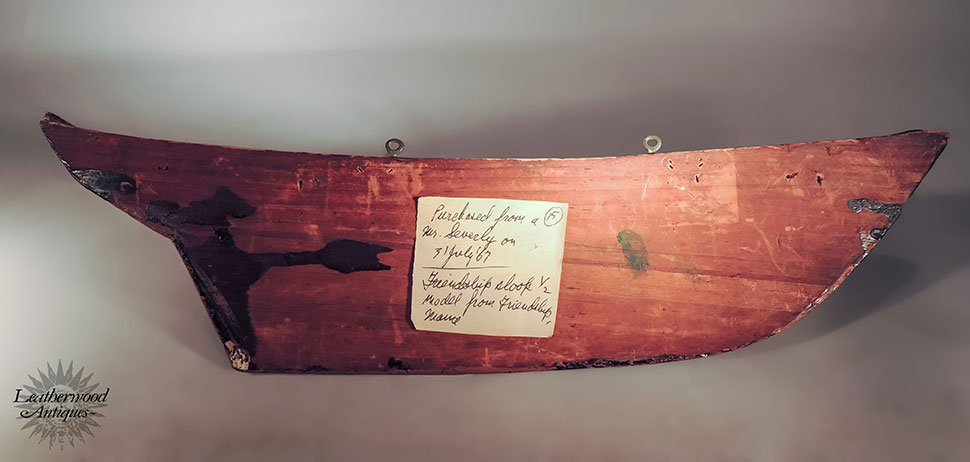 Purchased from a 15
Mr. Severly on
31 July '67
Friendship sloop 1/2
Model from Friendship,
Maine
Leatherwood
Antiques